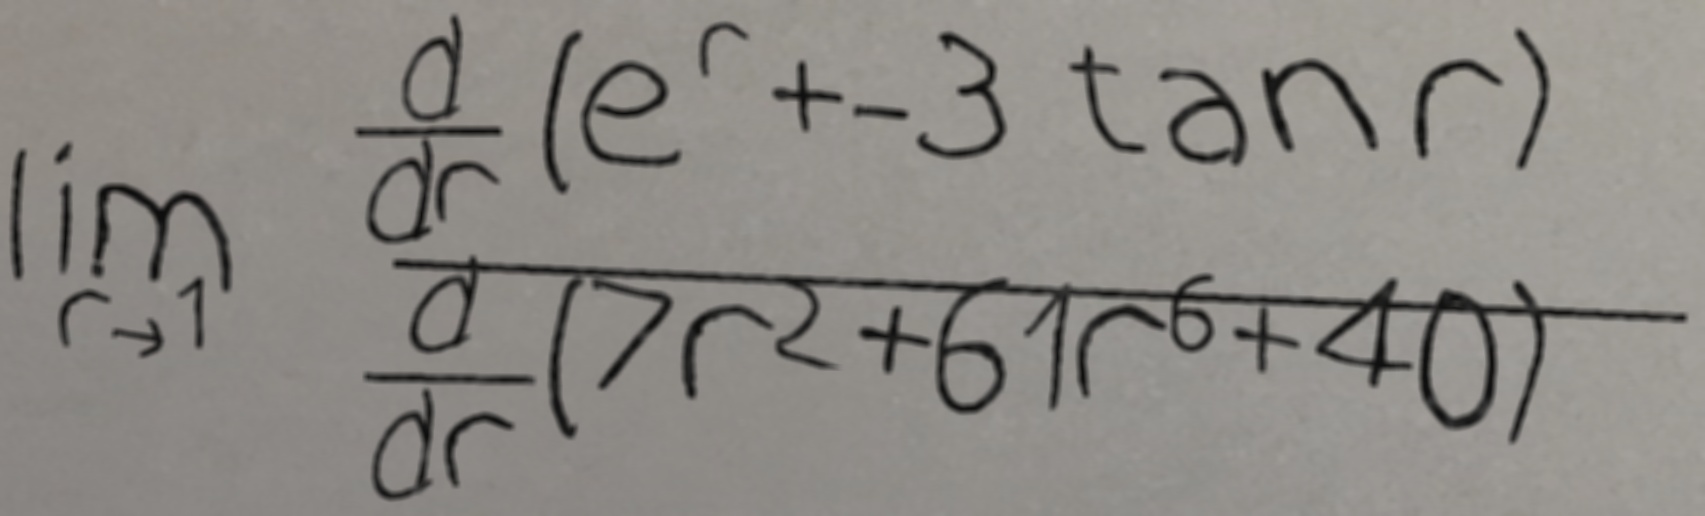 \lim_{r \to 1} \frac{\frac{d}{dr}(e^r + -3 \tan r)}{\frac{d}{dr}(7r^2 + 61r^6 + 40)}